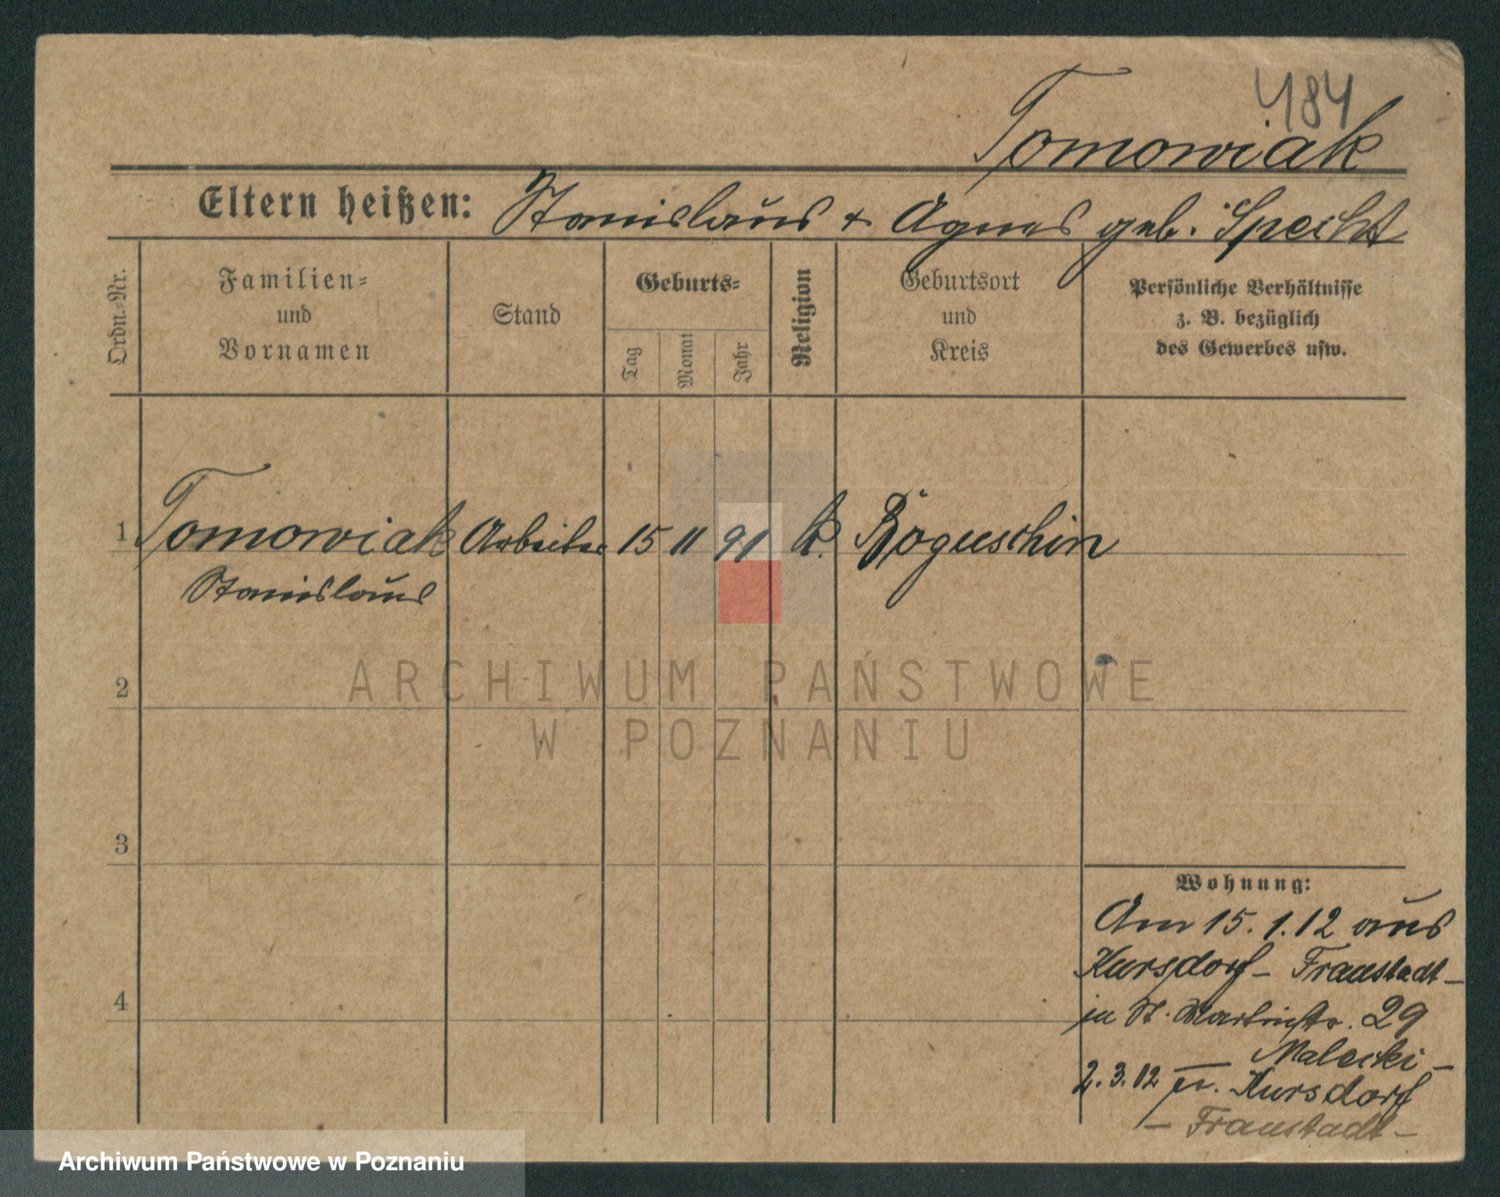 484
Tomowiak
Eltern heißen: Stanislaus + Agnes geb. Specht
Ordn.-Nr.
Familien-
und
Vornamen
Stand
Geburts-
Tag
Monat
Jahr
Religion
Geburtsort
und
Kreis
Persönliche Verhältnisse
z. B. bezüglich
des Gewerbes usw.
1 Tomowiak Arbeiter 15 11 91 k. Roguschin
Stanislaus
2
ARCHIWUM PAŃSTWOWE
W POZNANIU
3
4
Wohnung:
Am 15.1.12 aus
Kursdorf - Fraustadt -
in St. Martinstr. 29
Malecki -
2.3.12 n. Kursdorf
- Fraustadt -
Archiwum Państwowe w Poznaniu